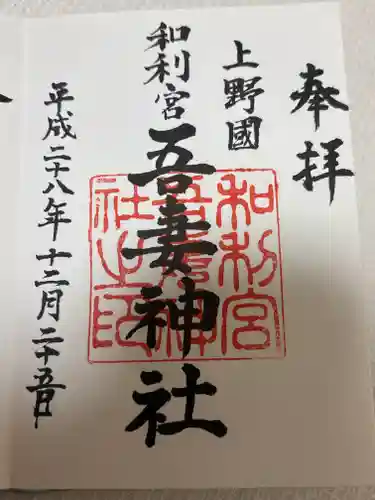 奉拝
上野國
和利宮
吾妻神社
和利宮
吾妻神
社之印
平成二十八年十二月二十五日